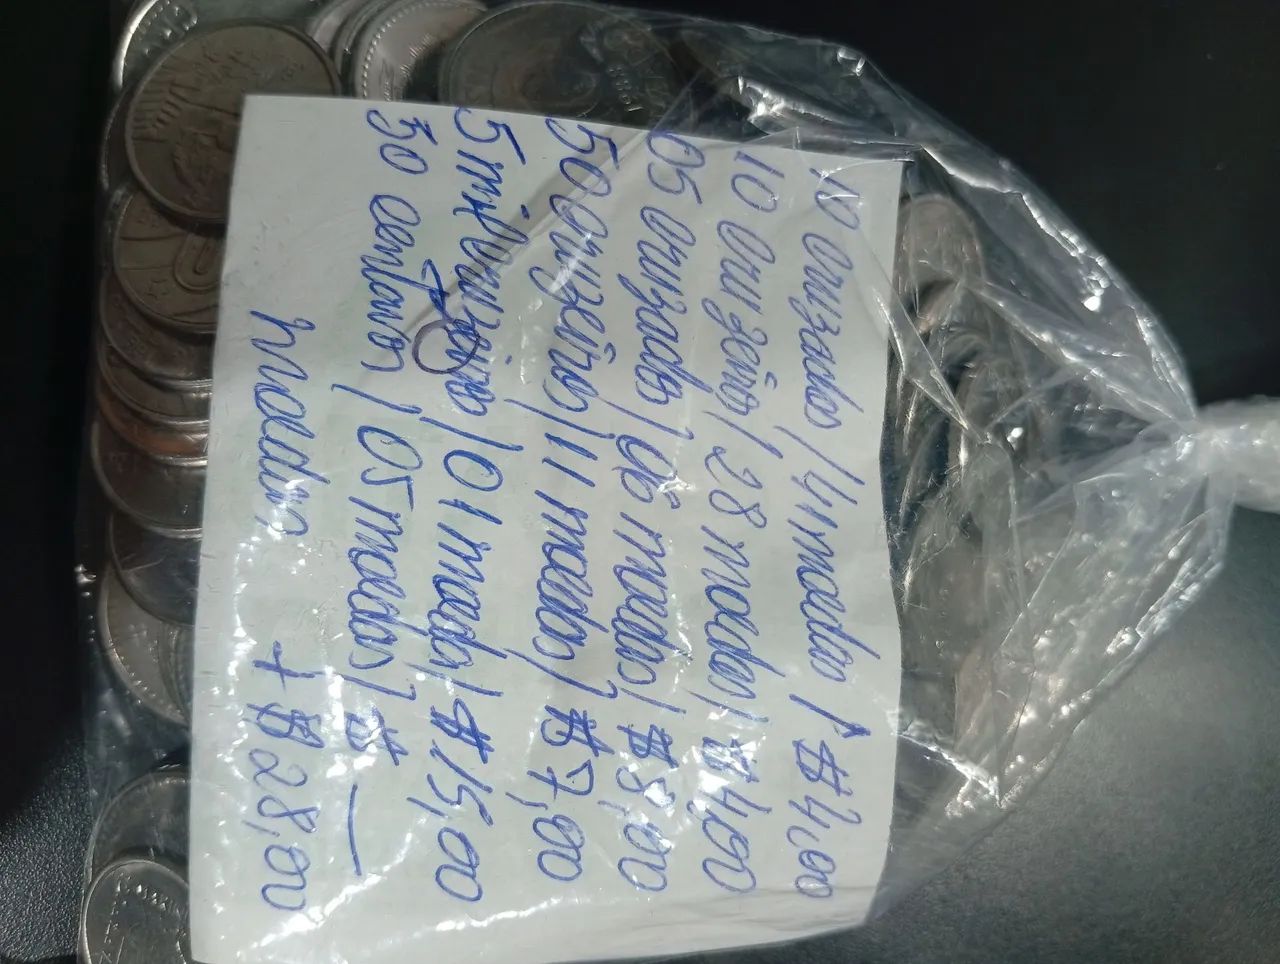 10 cruzados / 41 moedas / $4,00
10 cruzeiros / 28 moedas / $4,00
05 cruzados / 06 moedas / $3,00
50 cruzeiros / 11 moedas / $7,00
5 mil cruzeiros / 01 moeda / $15,00
50 centavos / 05 moedas / $ —
moedas + $28,00